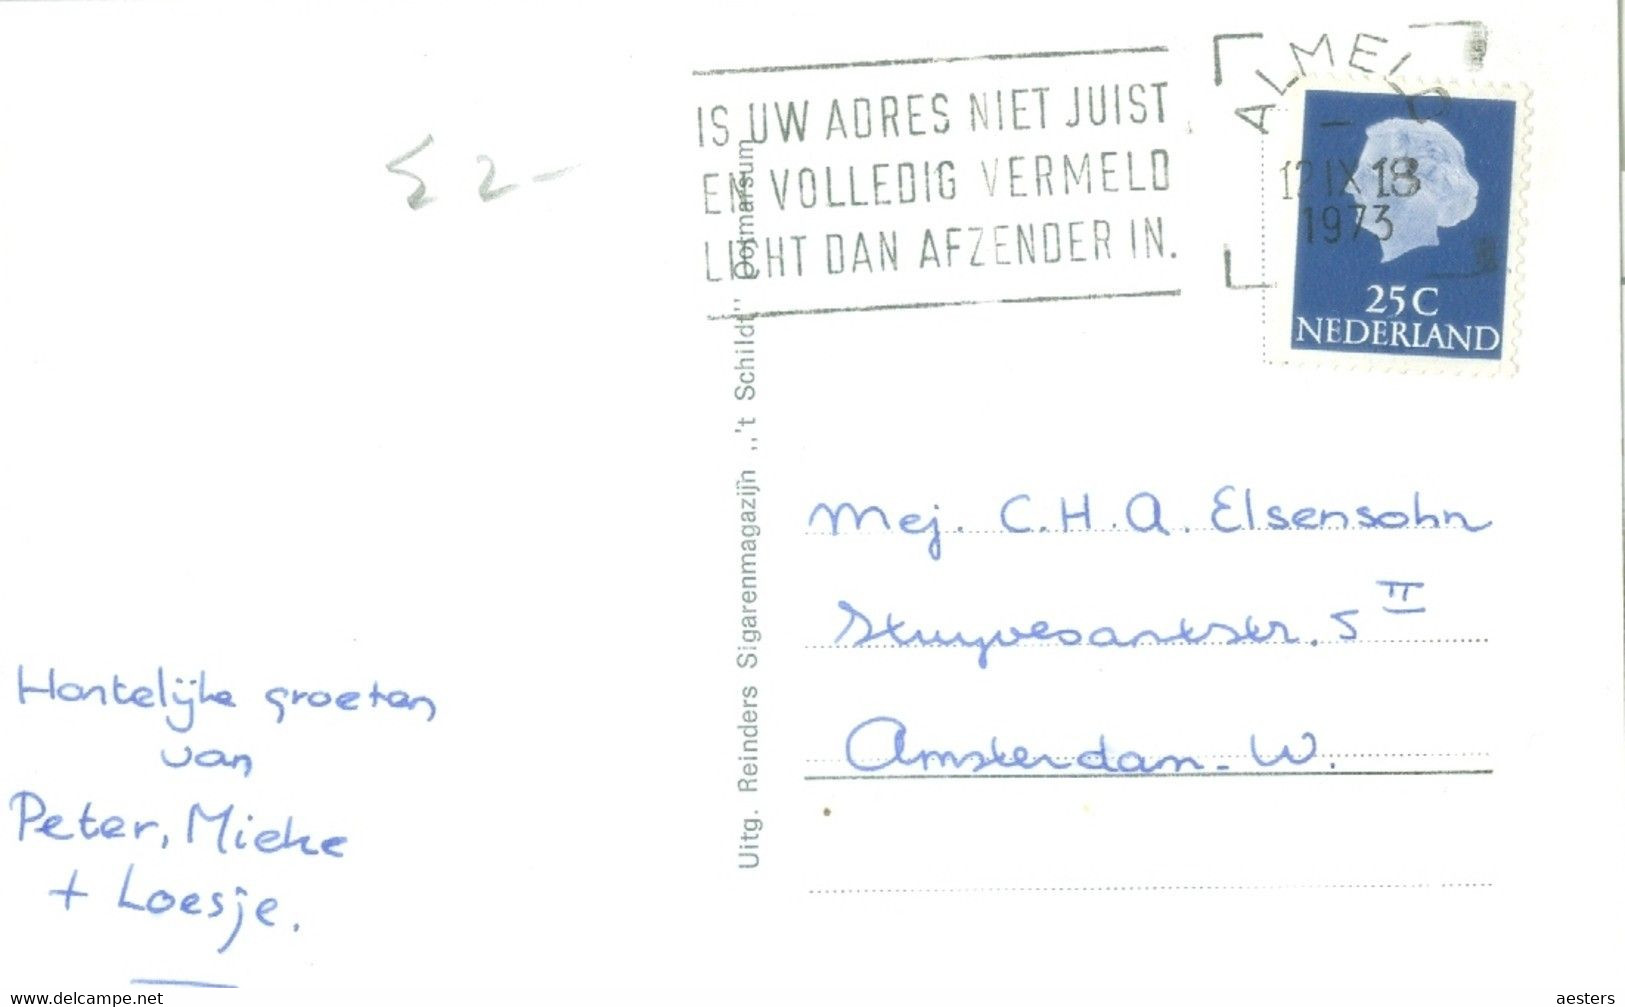 IS UW ADRES NIET JUIST
EN VOLLEDIG VERMELD
LICHT DAN AFZENDER IN.
ALMELO
12 IX 18
1973
25 C
NEDERLAND
52-
Uitg. Reinders Sigarenmagazijn ,,'t Schildt" Ootmarsum
Mej. C.H.A. Elsensohn
Stuyvesantstr. 5 II
Amsterdam-W.
Hartelijke groeten
van
Peter, Mieke
+ Loesje.
www.delcampe.net
aesters